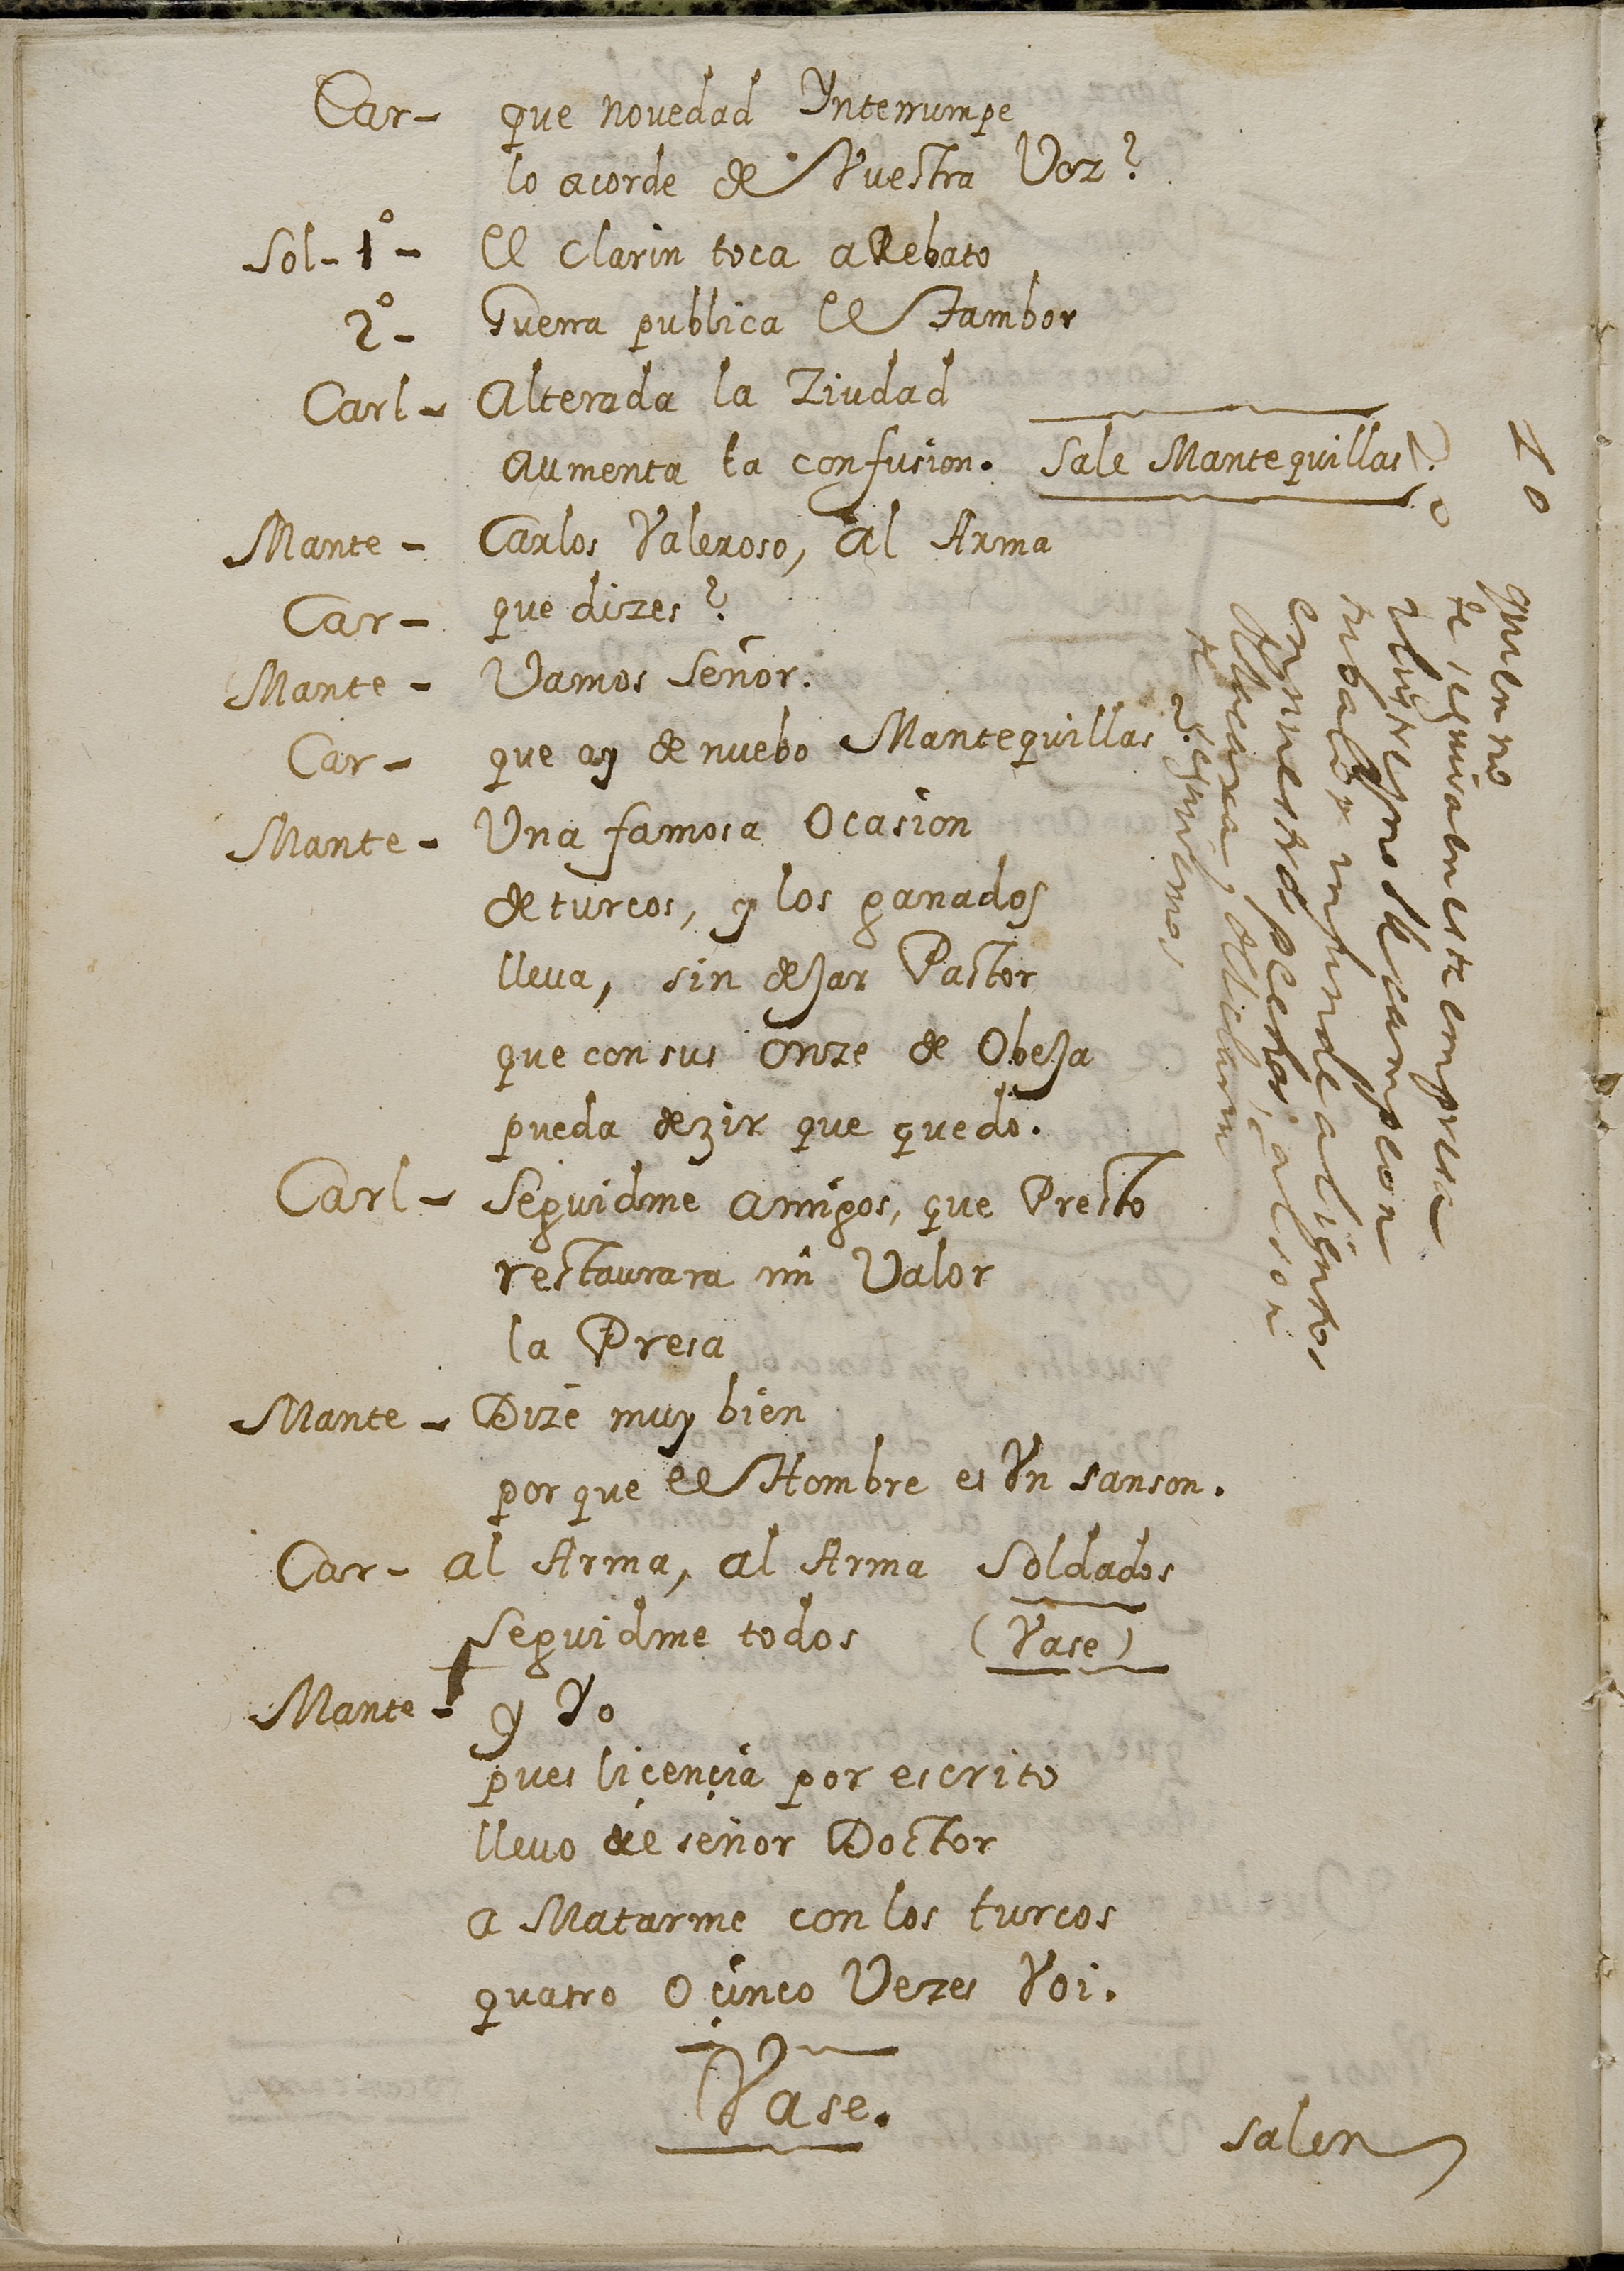 Car- que novedad Ynterrumpe
lo acorde de Vuestra Voz?
Sol-1º- El Clarin toca a Rebato
2º- Guerra publica el Tambor
Carl- Alterada la Ziudad
aumenta la confusion. Sale Mantequillas
Mante- Carlos Valeroso, al Arma
Car- que dizes?
Mante- Vamos Señor.
Car- que ay de nuebo Mantequillas
Mante- Una famosa Ocasion
de turcos, y los ganados
lleva, sin dejar Pastor
que con sus Onze de Obeja
pueda dezir que quedo.
Carl- Seguidme amigos, que Presto
restaurara mi Valor
la Presa
Mante- Dize muy bien
por que el Hombre es Vn sanson.
Car- al Arma, al Arma Soldados
seguidme todos (Vase)
Mante- y Yo
pues liçençia por escrito
llevo de señor Doctor
a Matarme con los turcos
quatro o çinco Vezes Voi.
Vase.
salen
1º
quien no
te seguira en esta empresa
2º
ylustre Jno de campeon
tu balor ynfunde alientos
en nuestros pechos, al son
de la caxa, y el clarin
te seguimos